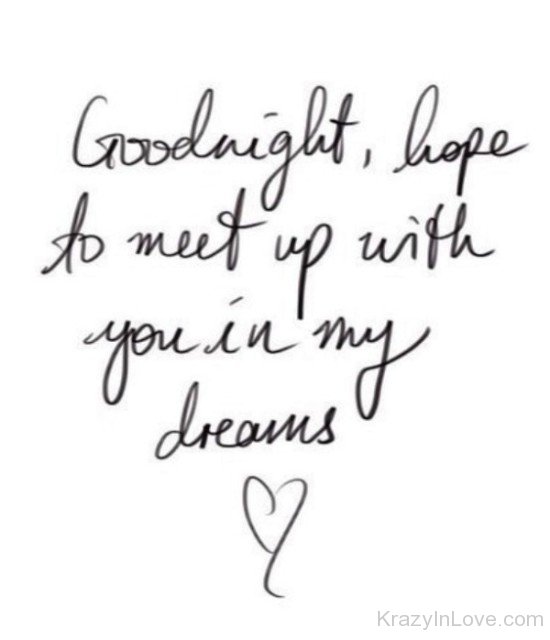 Goodnight, hope
to meet up with
you in my
dreams
KrazyInLove.com